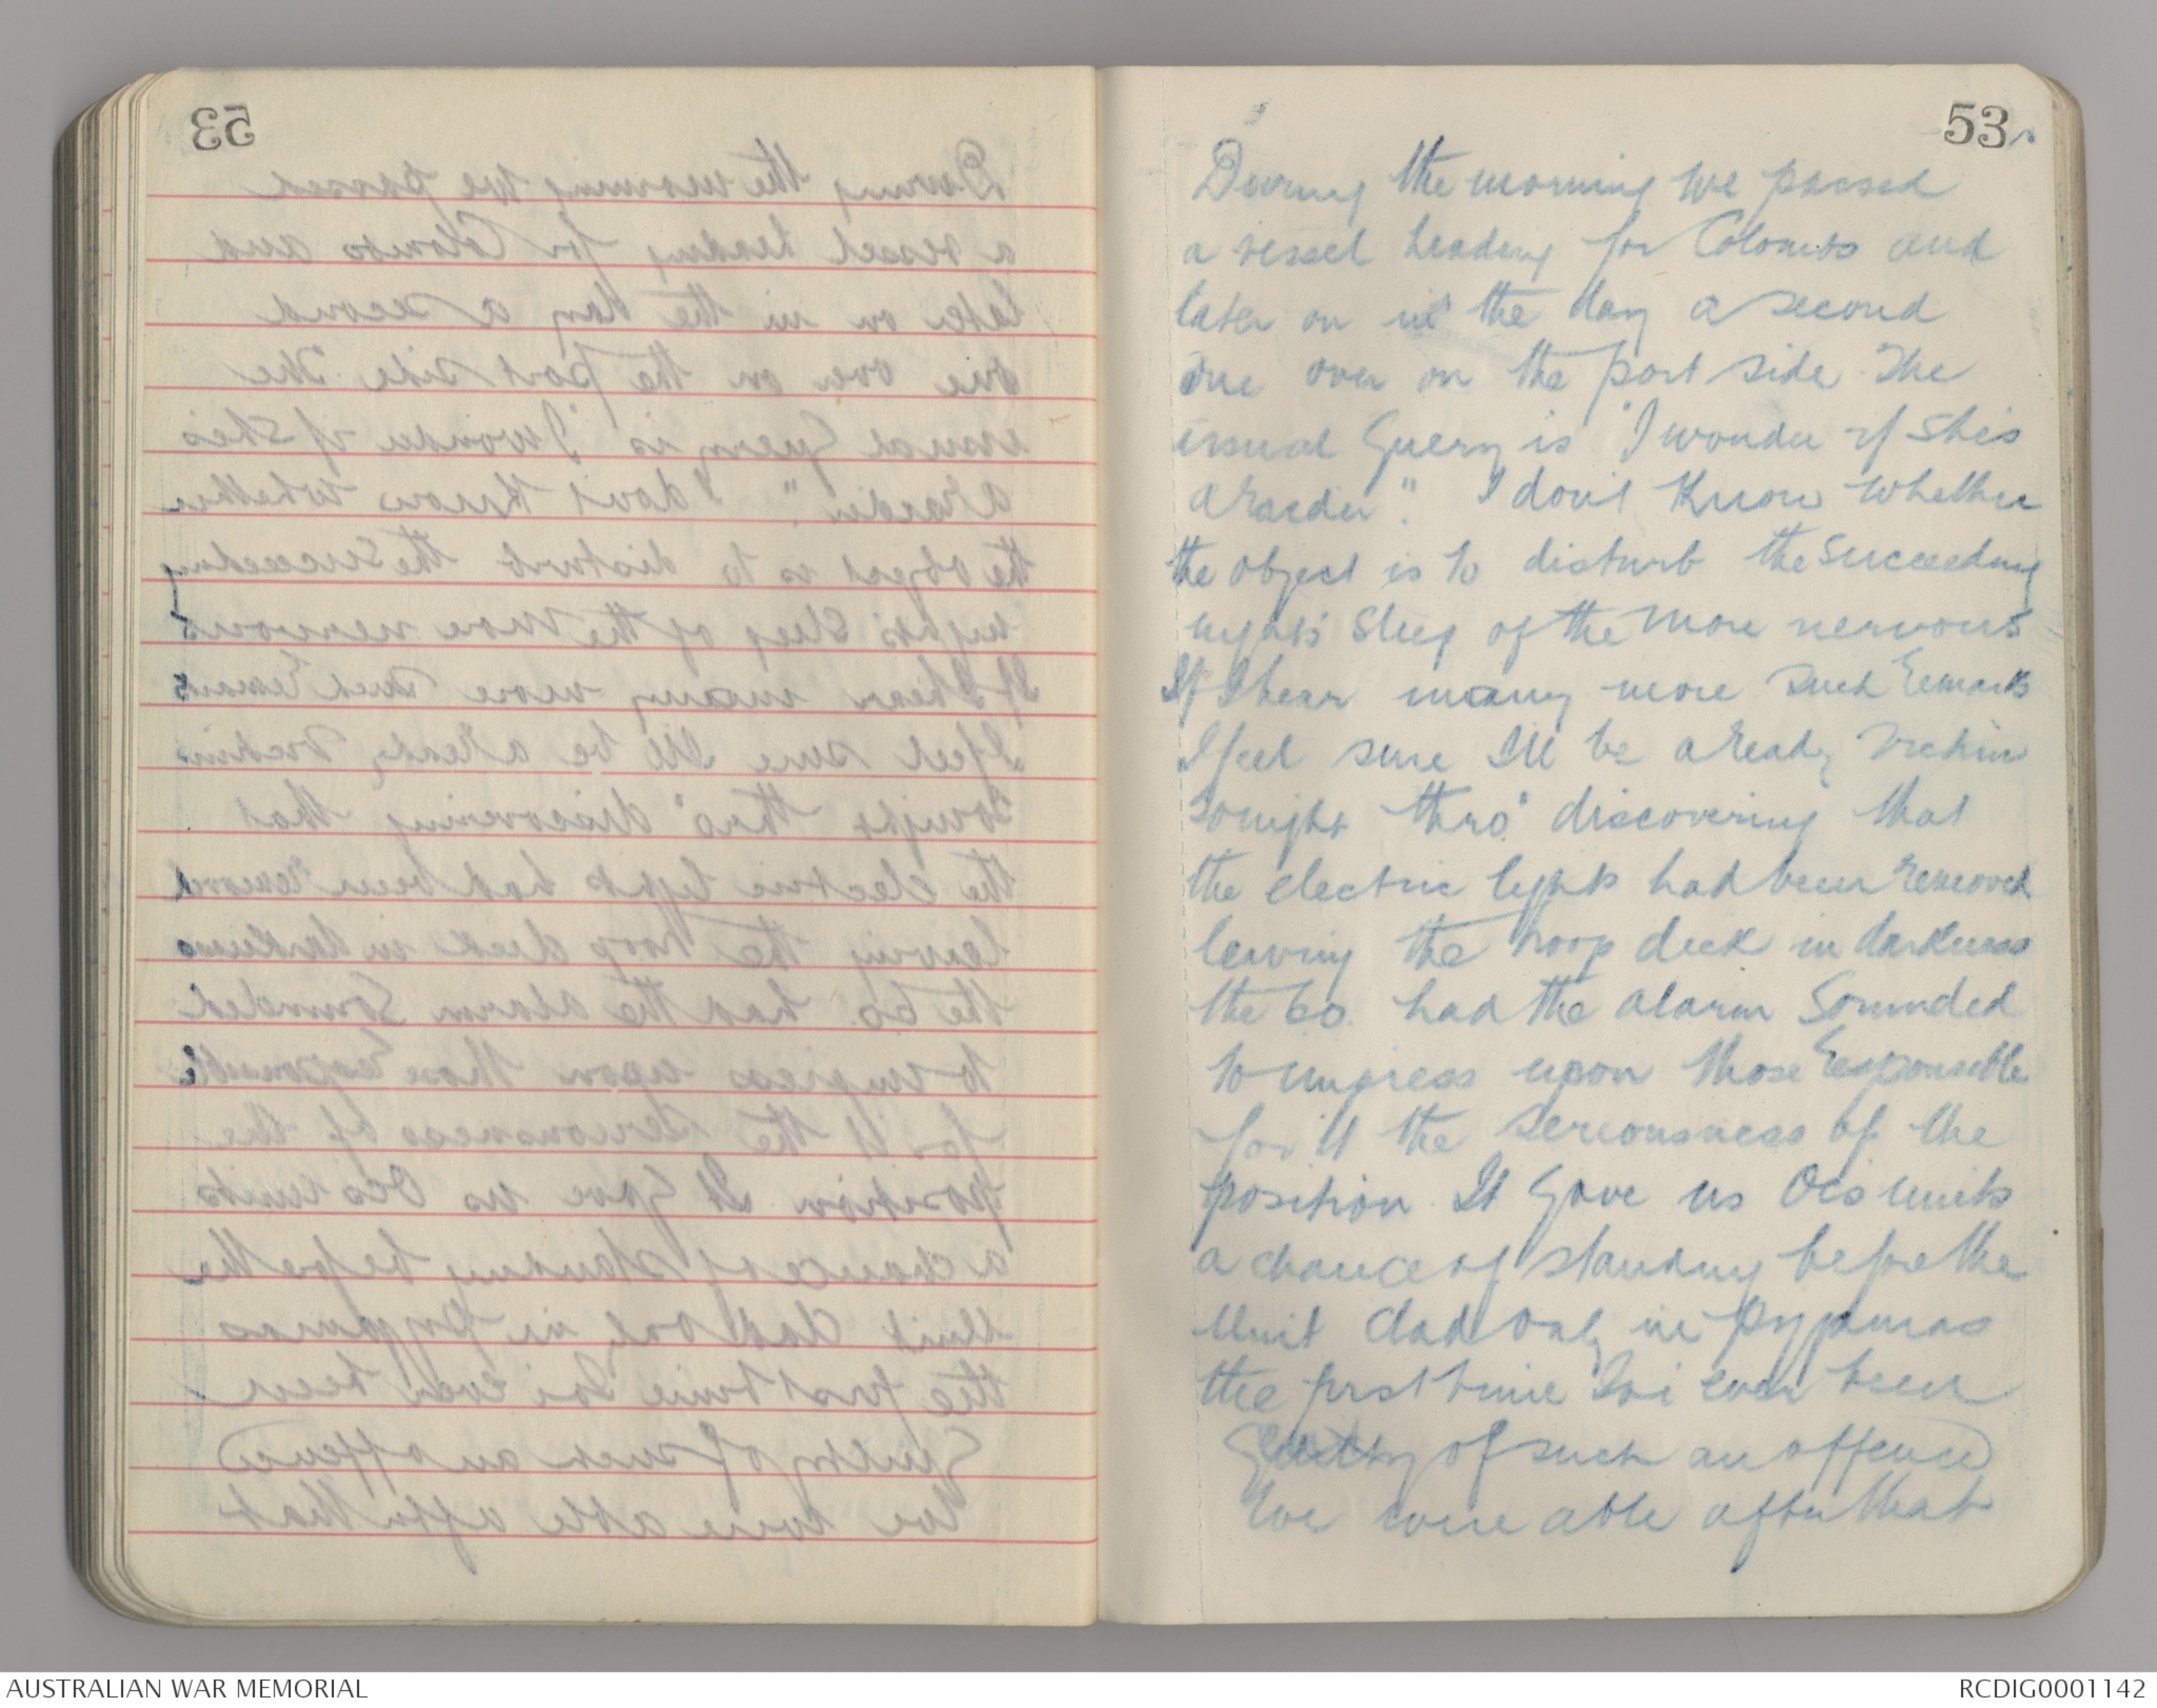 53
During the morning we passed
a vessel heading for Colombo and
later on in the day a second
one over on the port side The
usual Query is "I wonder if she's
a Raider." I don't Know whether
the object is to disturb the succeeding
night's sleep of the more nervous
If I hear many more such Remarks
I feel sure I'll be a ready victim
Tonight thro' discovering that
the electric lights had been removed
leaving the troop deck in darkness
the Co. had the alarm Sounded
to impress upon those Responsible
for it the seriousness of the
position It Gave us Ocs Units
a chance of standing before the
Unit clad only in Pyjamas
the first time I've ever been
Guilty of such an offence
We were able after that
AUSTRALIAN WAR MEMORIAL
RCDIG0001142